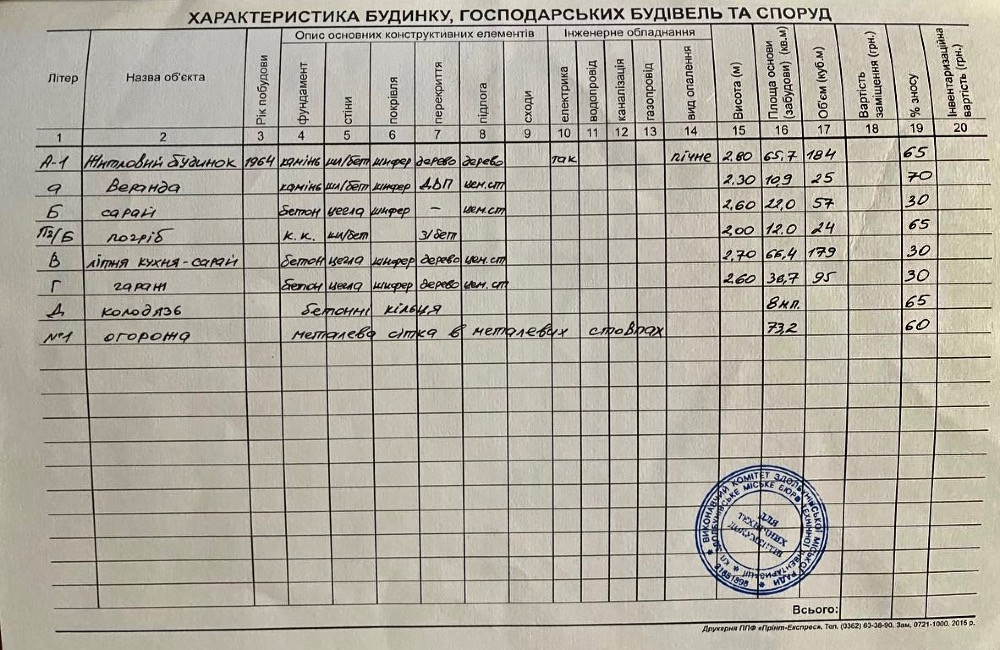 ХАРАКТЕРИСТИКА БУДИНКУ, ГОСПОДАРСЬКИХ БУДІВЕЛЬ ТА СПОРУД
Літер Назва об'єкта Рік побудови Опис основних конструктивних елементів Інженерне обладнання Висота (м) Площа основи (забудови) (кв.м) Об'єм (куб.м) Вартість заміщення (грн.) % зносу Інвентаризаційна вартість (грн.)
фундамент стіни покрівля перекриття підлога сходи електрика водопровід каналізація газопровід вид опалення
1 2 3 4 5 6 7 8 9 10 11 12 13 14 15 16 17 18 19 20
А-1 Житловий будинок 1964 камінь шл/бет шифер дерево дерево так пічне 2,80 65,7 184 65
а Веранда камінь шл/бет шифер ДВП цем.ст 2,30 10,9 25 70
Б сарай бетон цегла шифер – цем.ст 2,60 22,0 57 30
Пг/Б погріб к.к. шл/бет з/бет 2,00 12,0 24 65
В літня кухня-сарай бетон цегла шифер дерево цем.ст 2,70 66,4 179 30
Г гараж бетон цегла шифер дерево цем.ст 2,60 36,7 95 30
Д колодязь бетонні кільця 8 мп. 65
№1 огорожа металева сітка в металевих стовпах 73,2 60
ВИКОНАВЧИЙ КОМІТЕТ ЗДОЛБУНІВСЬКОЇ МІСЬКОЇ РАДИ
КП ЗДОЛБУНІВСЬКЕ МІСЬКЕ БЮРО ТЕХНІЧНОЇ ІНВЕНТАРИЗАЦІЇ
ДЛЯ
ТЕХНІЧНИХ
ДОКУМЕНТІВ
Всього:
Друкарня ППФ «Прінт-Експрес». Тел. (0362) 63-38-90. Зам. 0721-1000. 2015 р.